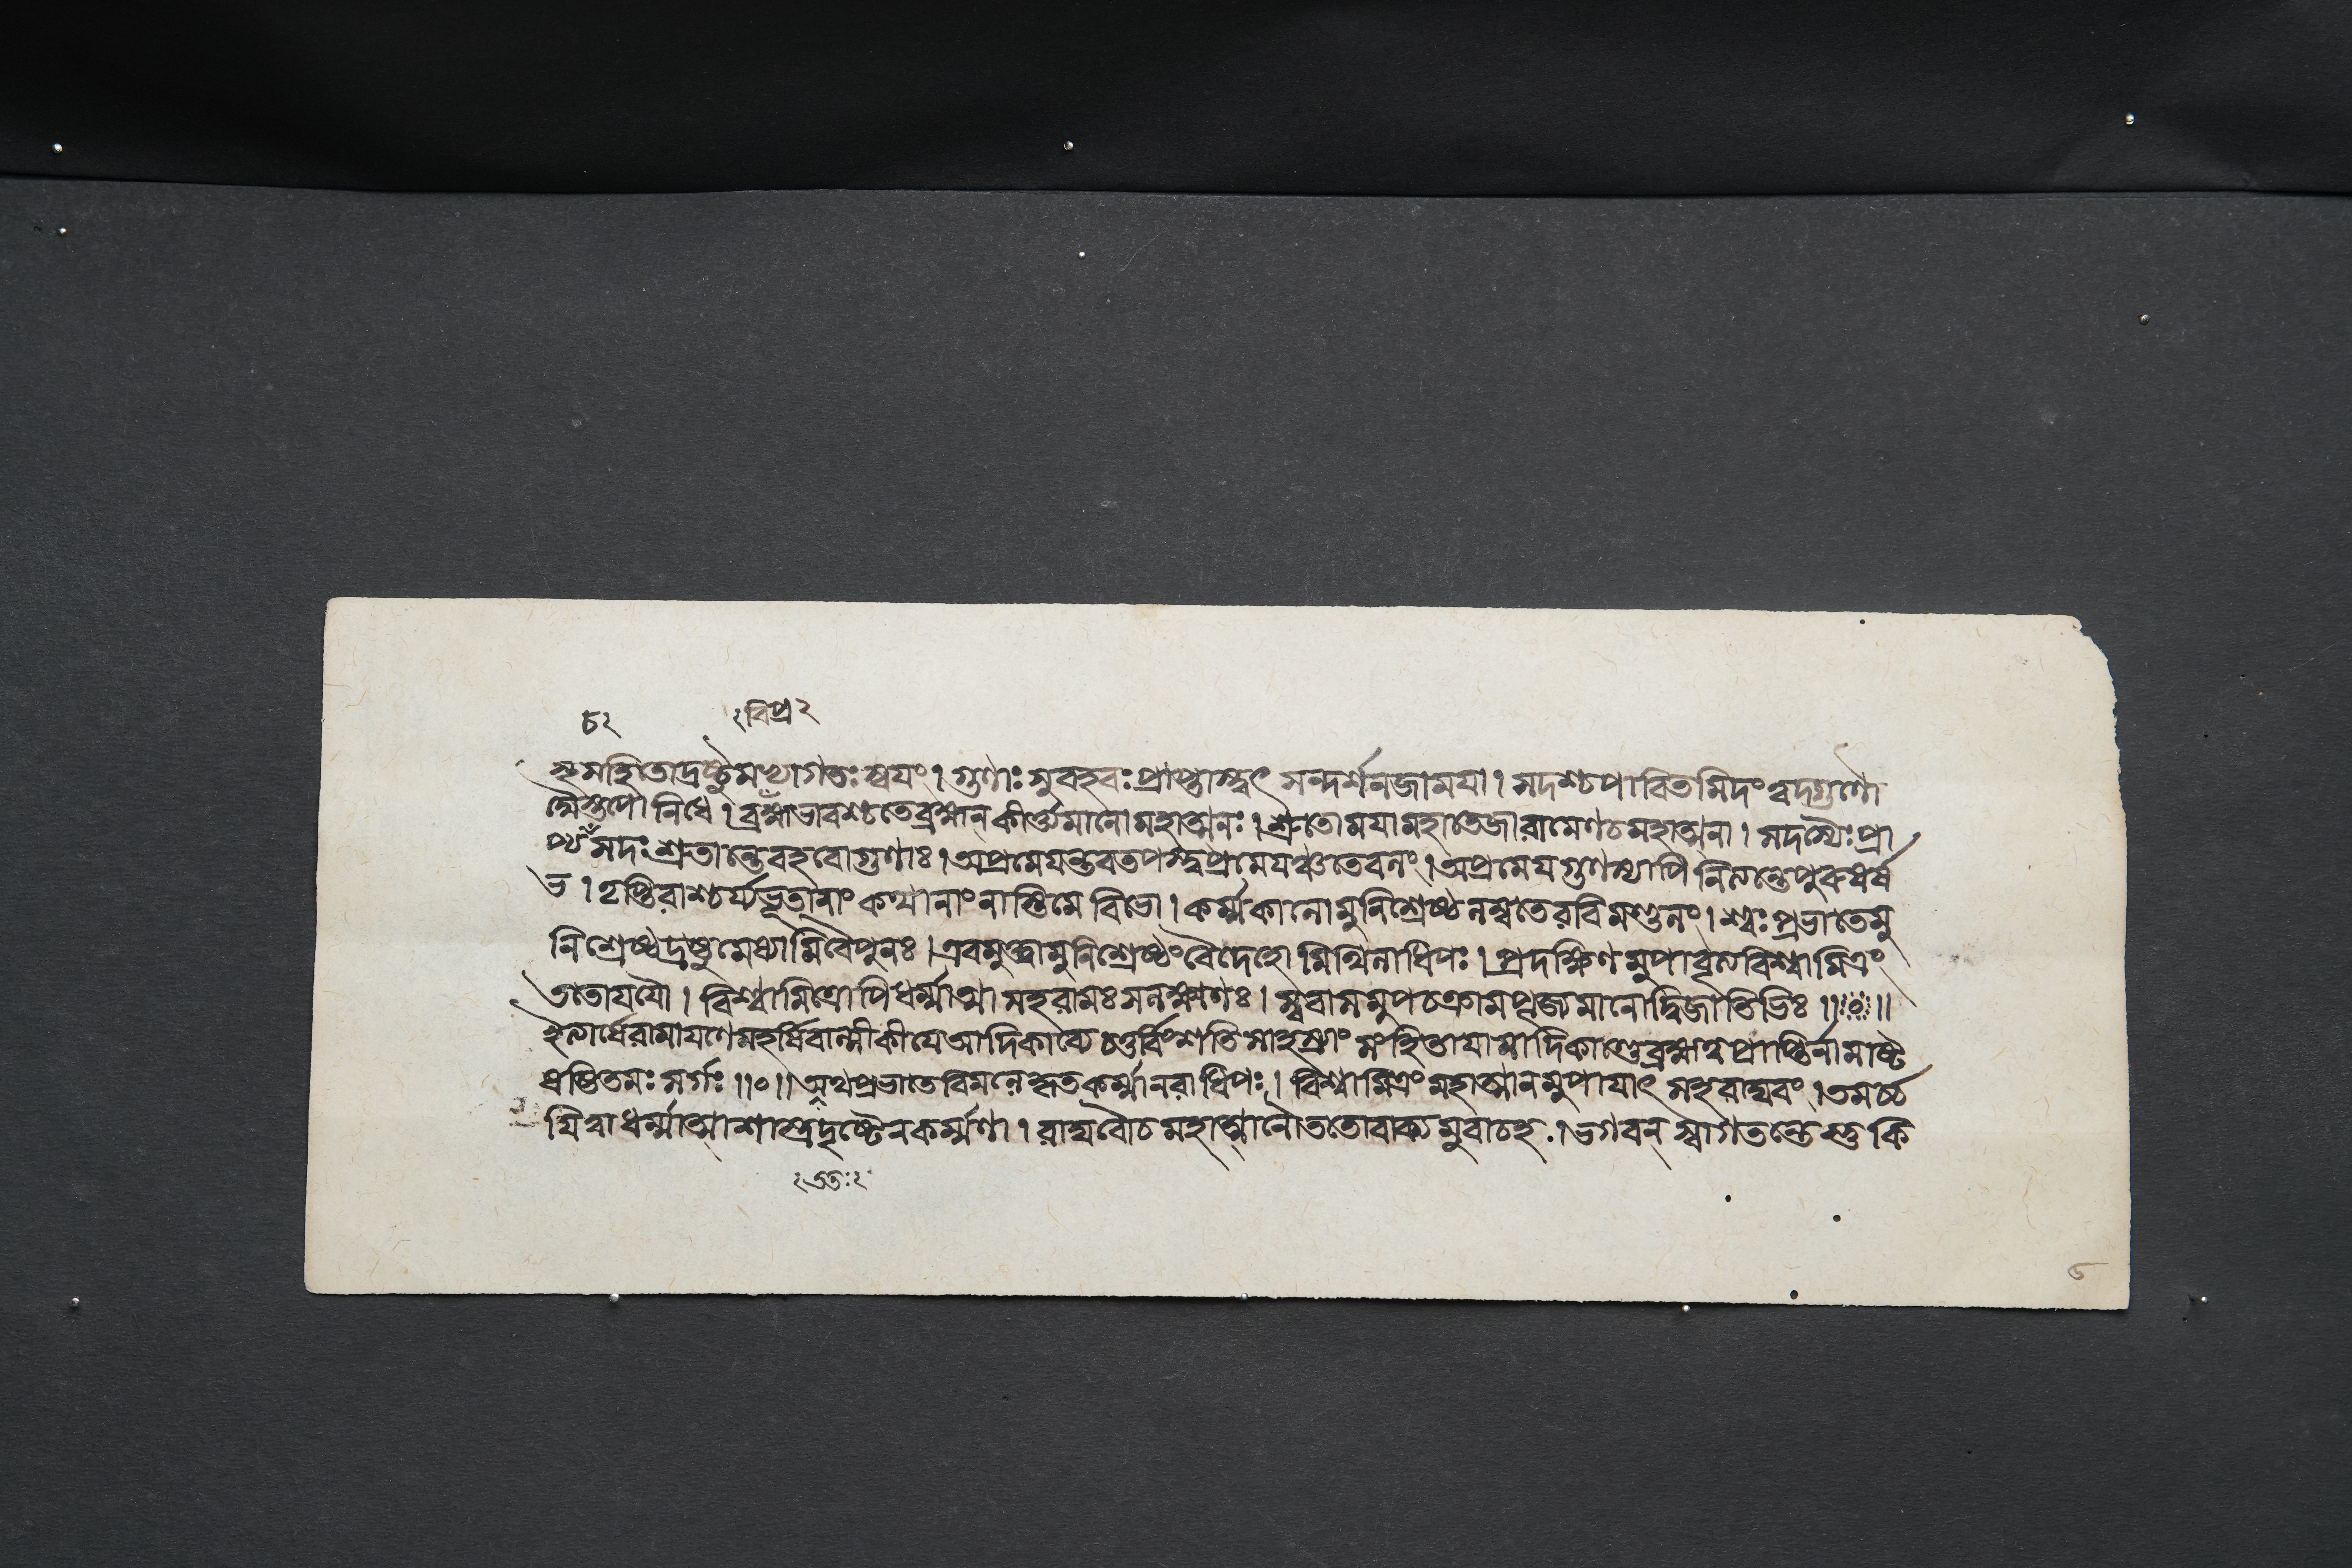 ৮২ বিপ্র ২
ক্ষমন্বিতোদ্রষ্টুমভ্যাগতঃ স্বযং । গুণাঃ সুবহবঃ প্রাপ্তাস্ত্বৎ সন্দর্শনজামযা । সদশ্চপাবিতমিদং ত্বদ্গুণৌ
স্তপো নিধে । ব্রহ্মাভাবশ্চতেব্রহ্মন কীর্ত্ত্যমানো মহাত্মনঃ । শ্রুতো মযামহাতেজারামেণচমহাত্মনা । সদস্যৈঃ প্রা
প্য সদঃ শ্রুতাস্তে বহবোগুণাঃ । অপ্রমেযন্তবতপস্ত্বপ্রমেযঞ্চতেবলং । অপ্রমেযগুণশ্চাপি নিত্যন্তেপুরুষর্ষ
ভ । তৃপ্তিরাশ্চর্য্যভূতানাং কথানাং নাস্তিমে বিভো । কর্ম্মকালোমুনিশ্রেষ্ঠ লম্বতেরবিমণ্ডলং । শ্বঃ প্রভাতেমু
নিশ্রেষ্ঠদ্রষ্টুমেষ্যামিবৈপুনঃ । এবমুক্ত্বামুনিশ্রেষ্ঠংবৈদেহো মিথিলাধিপঃ । প্রদক্ষিণমুপাবৃত্যবিশ্বামিত্রং
ততোযযৌ । বিশ্বামিত্রোপিধর্ম্মাত্মা সহরামঃ সলক্ষ্মণঃ । স্ববাসমুপচক্রামপূজ্যমানোদ্বিজাতিভিঃ ॥০॥
ইত্যার্ষেরামাযণেমহর্ষিবাল্মীকীযে আদিকাব্যে চতুর্ব্বিংশতি সাহস্র্যাং সংহিতাযামাদিকাণ্ডেব্রহ্মত্বপ্রাপ্তির্নামাষ্ট
ষষ্টিতমঃ সর্গঃ ॥০॥ অথপ্রভাতেবিমলে কৃতকর্ম্মানরাধিপঃ । বিশ্বামিত্রং মহাত্মানমুপাযাৎ সহ রাঘবং । তমর্চ্চ
যিত্বাধর্ম্মাত্মাশাস্ত্রদৃষ্টেনকর্ম্মণা । রাঘবৌচমহাত্মানৌততোবাক্যমুবাচহ । ভগবন্ স্বাগতন্তেস্তু কি
২ ততঃ ২